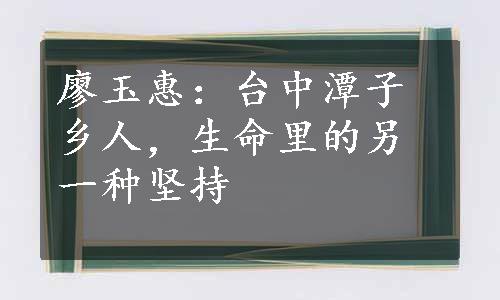 廖玉惠：台中潭子
乡人，生命里的另
一种坚持